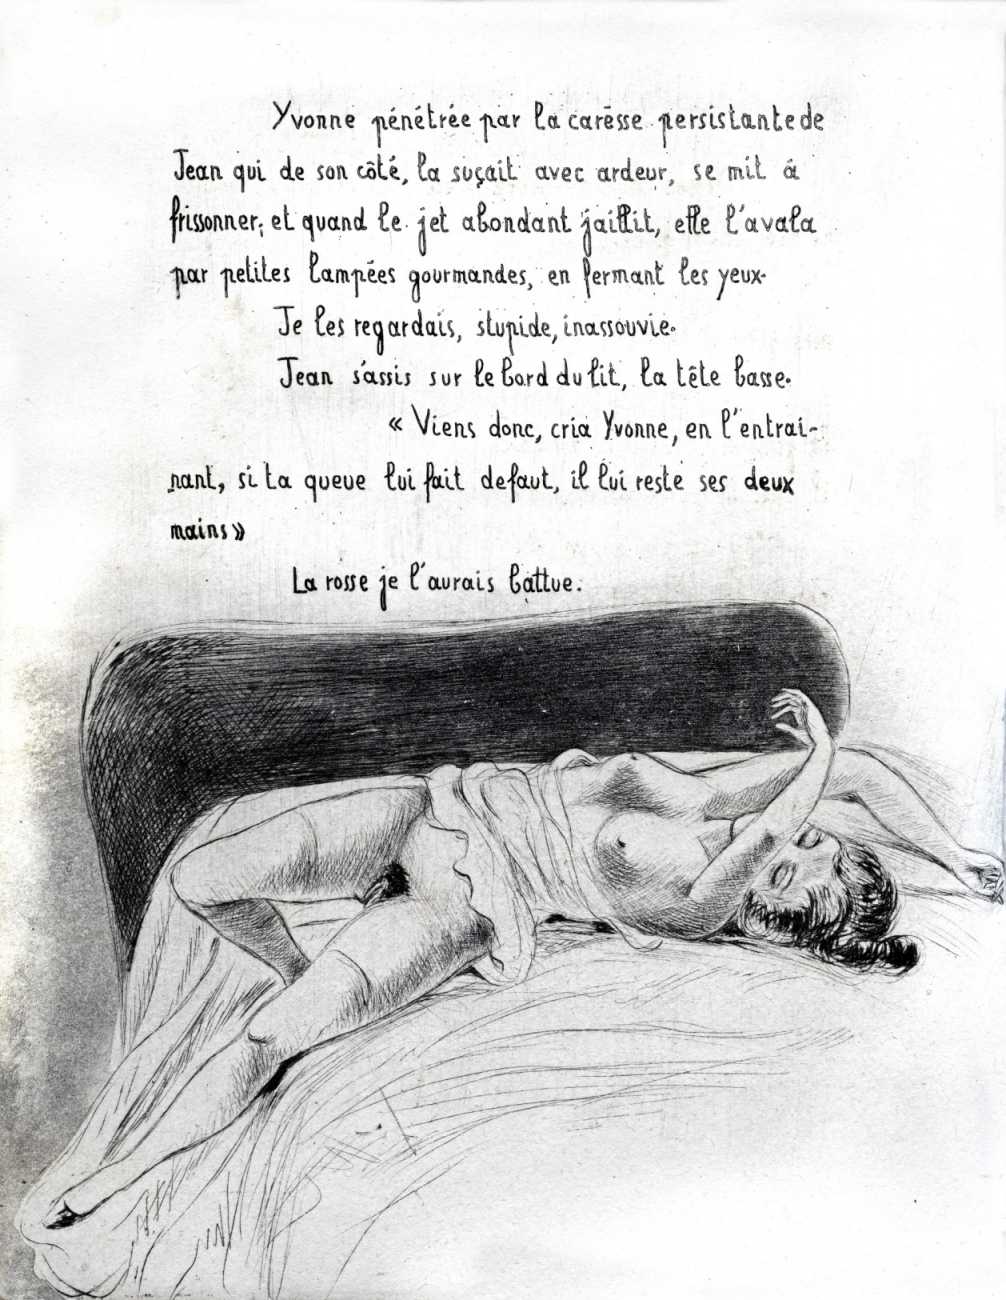 Yvonne pénétrée par la caresse persistante de
Jean qui de son côté, la suçait avec ardeur, se mit à
frissonner; et quand le jet abondant jaillit, elle l'avala
par petites lampées gourmandes, en fermant les yeux.
Je les regardais, stupide, inassouvie.
Jean s'assis sur le bord du lit, la tête basse.
« Viens donc, cria Yvonne, en l'entrai-
nant, si ta queue lui fait defaut, il lui reste ses deux
mains »
La rosse je l'aurais battue.